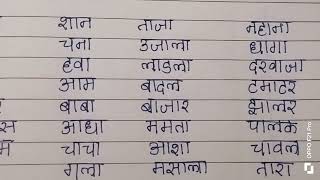 शान ताजा नहाना
चना उजाला धागा
हवा लाडला दरवाजा
आम बादल टमाटर
बाबा बाजार झालर
स आधा ममता पालक
म चाचा आशा चावल
गला मसाला तारा
OPPO F21 Pro